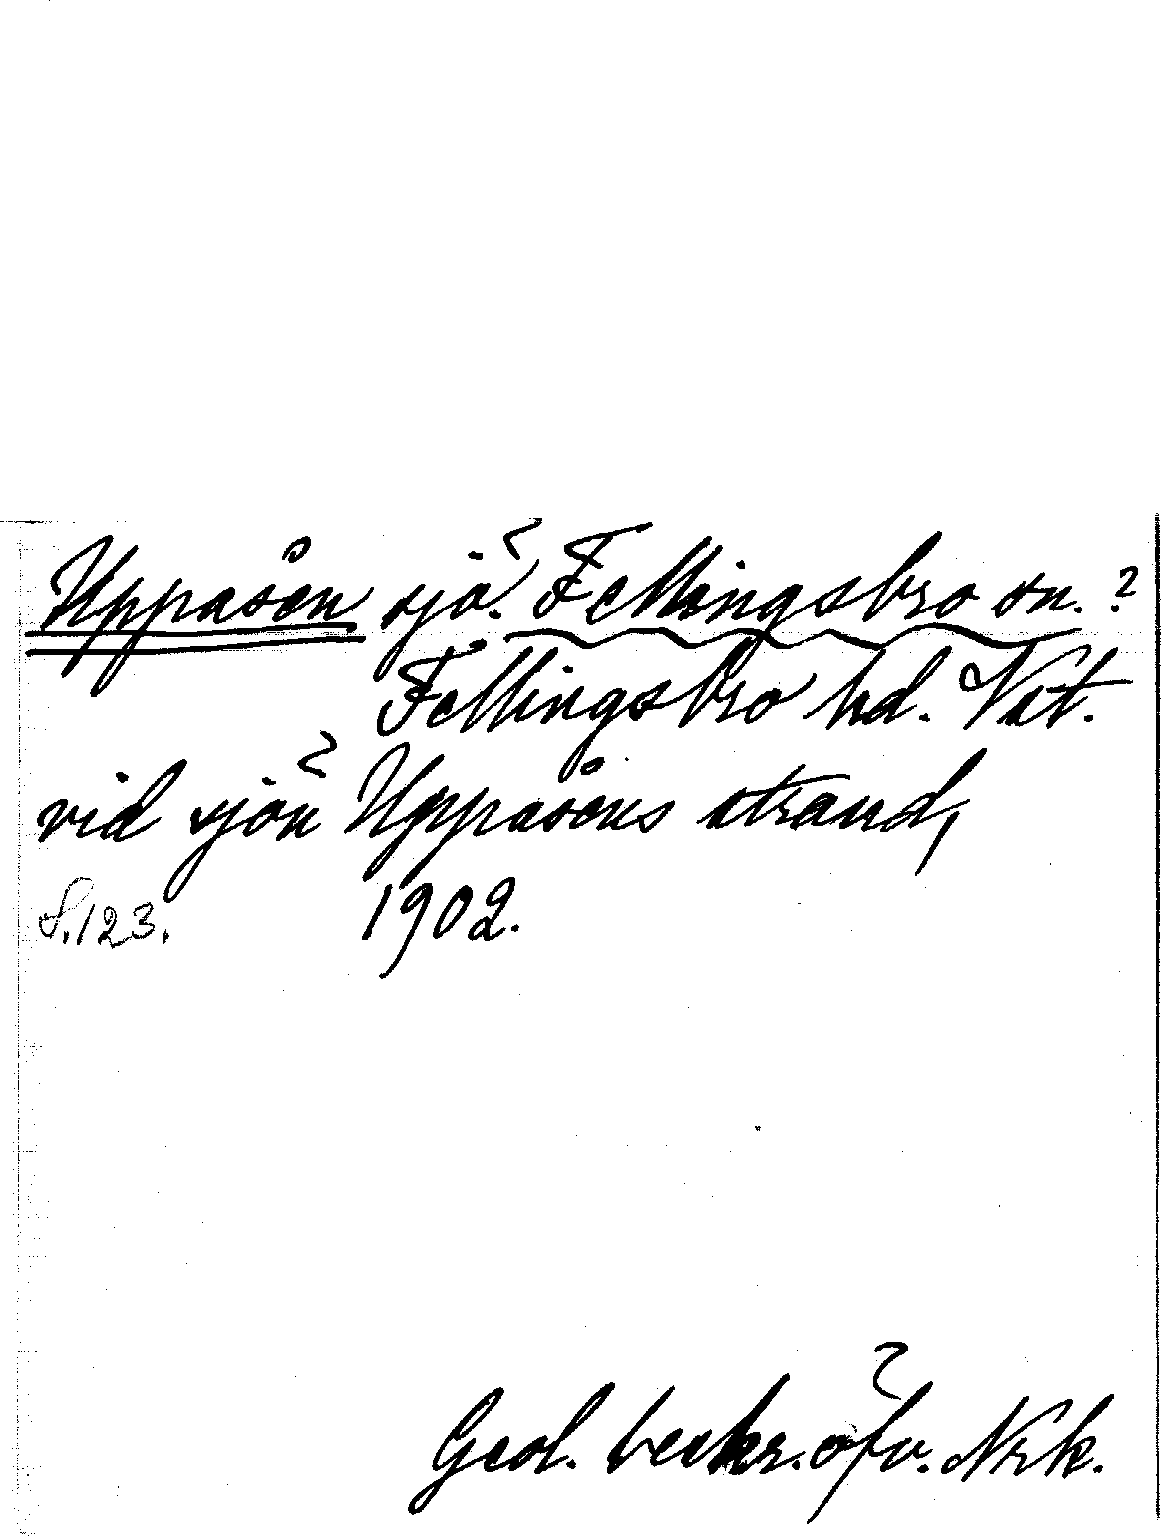 Uppåsen sjö. Fellingsbro sn.?
Fellingsbro hd. Vst.
vid sjön Uppåsens strand,
S. 123. 1902.
Geol. beskr. öfv. Nrk.